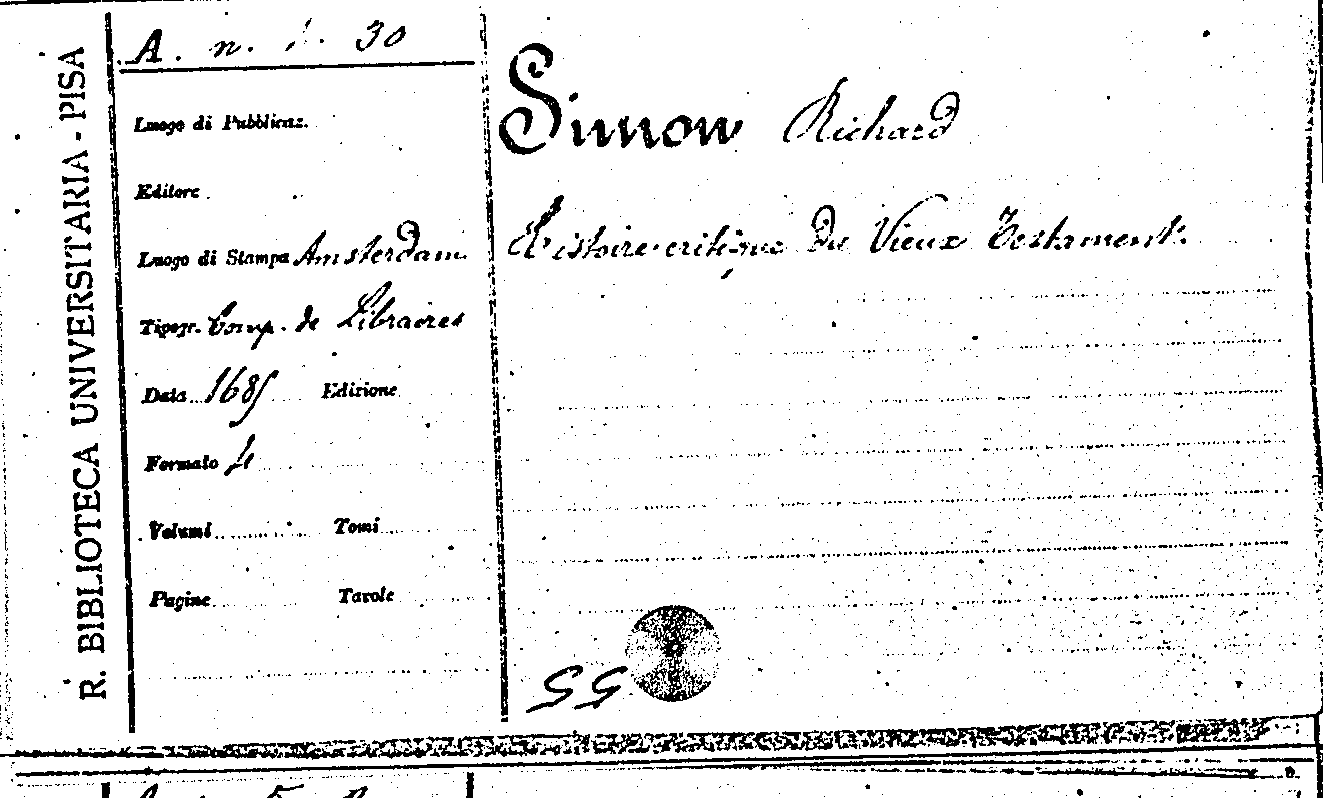 R. BIBLIOTECA UNIVERSITARIA - PISA
A. n. 1. 30
Luogo di Pubblicaz.
Editore
Luogo di Stampa Amsterdam
Tipogr. Comp. de Libraires
Data 1685 Edizione
Formato 4
Volumi Tomi
Pagine Tavole
Simon Richard
Histoire critique du Vieux Testament.
55